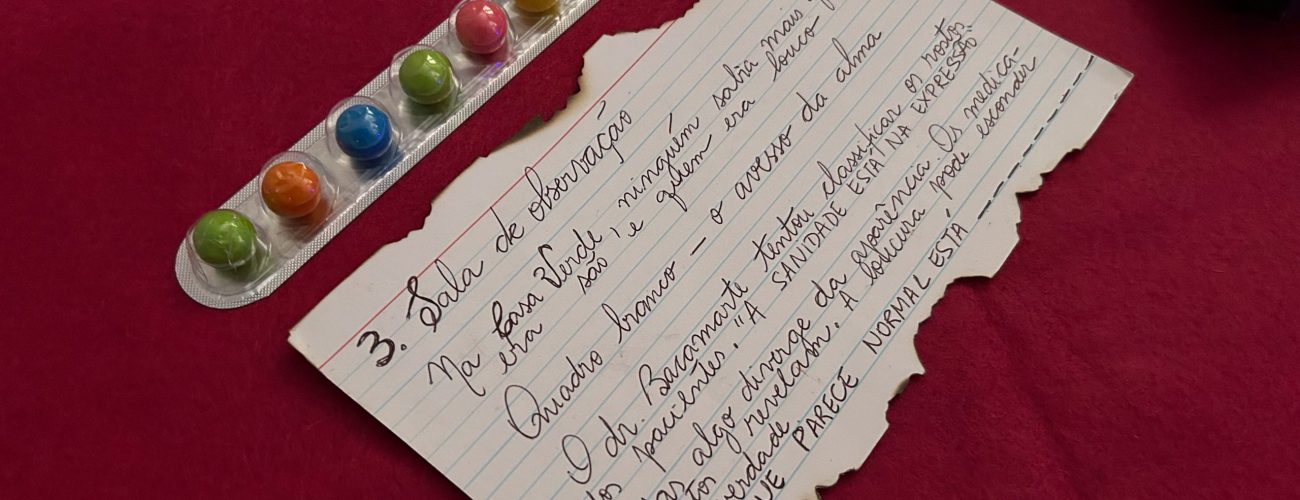 3. Sala de observação
Na Casa Verde ninguém sabia mais
era são, e quem era louco
Quadro branco – o avesso da alma
O dr. Bacamarte tentou classificar os rostos
dos pacientes. "A SANIDADE ESTÁ NA EXPRESSÃO".
algo diverge da aparência. Os medica-
revelam. A loucura pode esconder
PARECE NORMAL ESTÁ